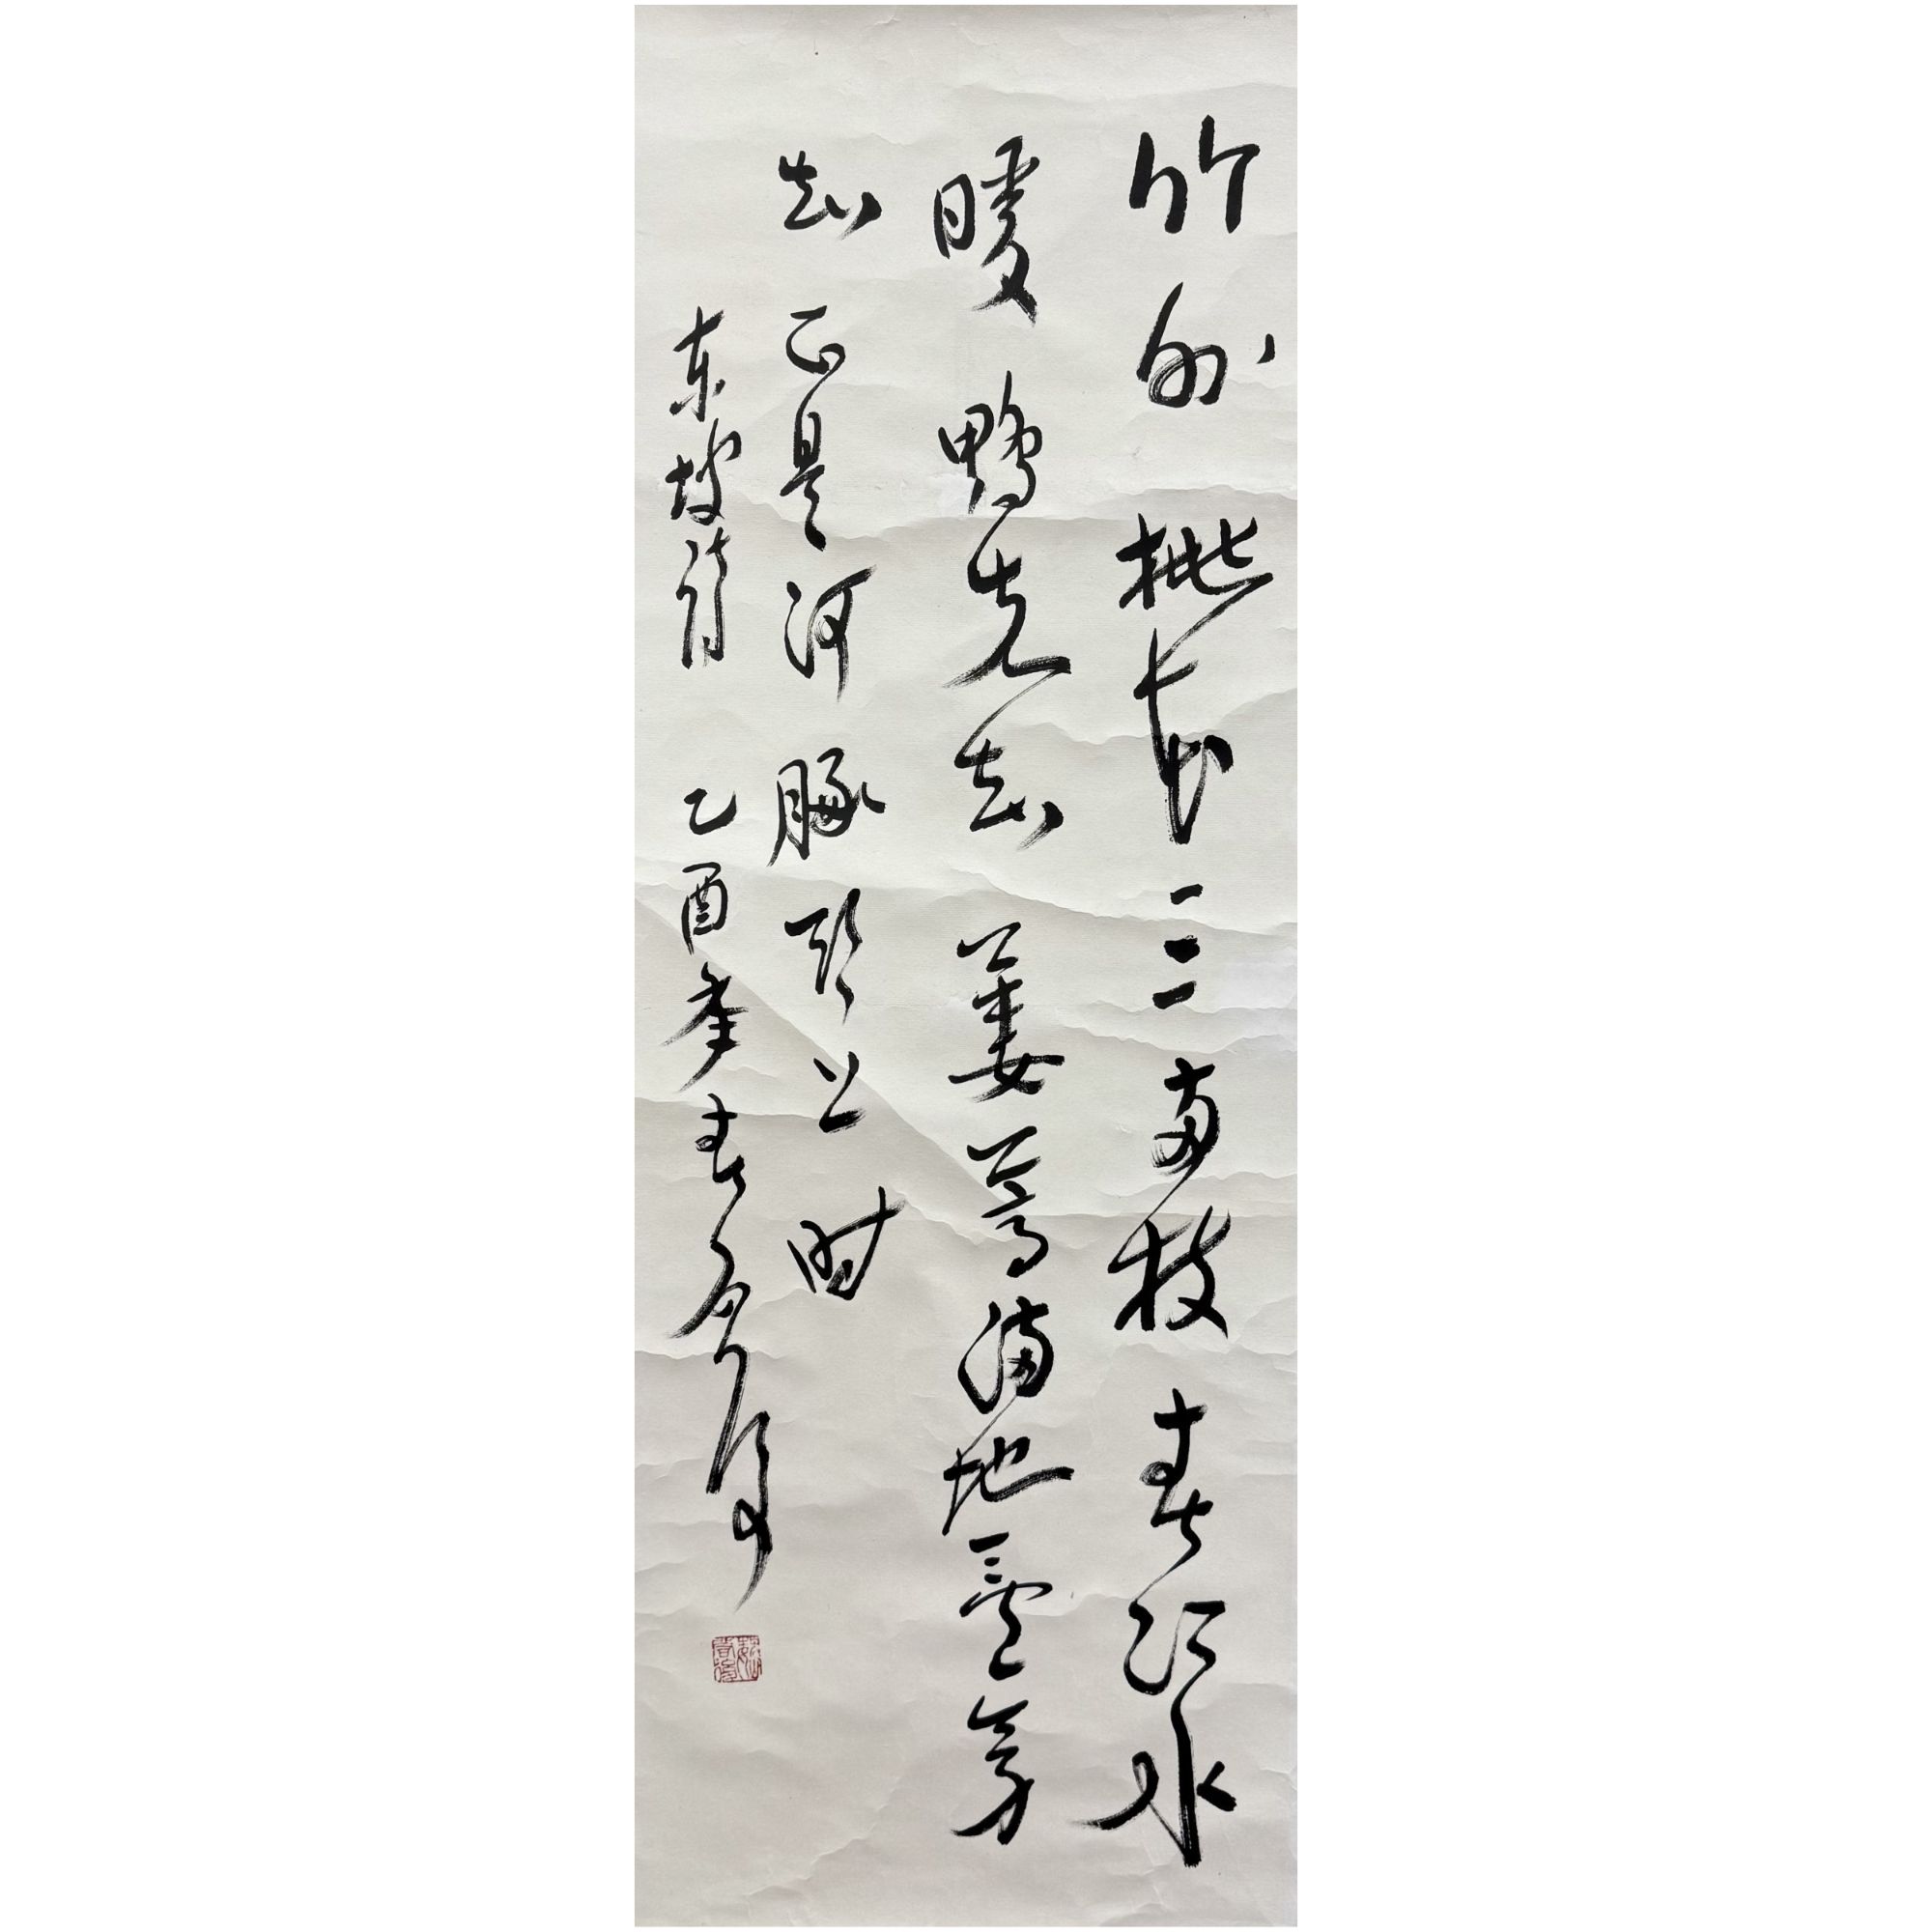 竹外桃花三两枝春江水
暖鸭先知蒌蒿满地芦芽
短正是河豚欲上时
东坡诗 乙酉年春